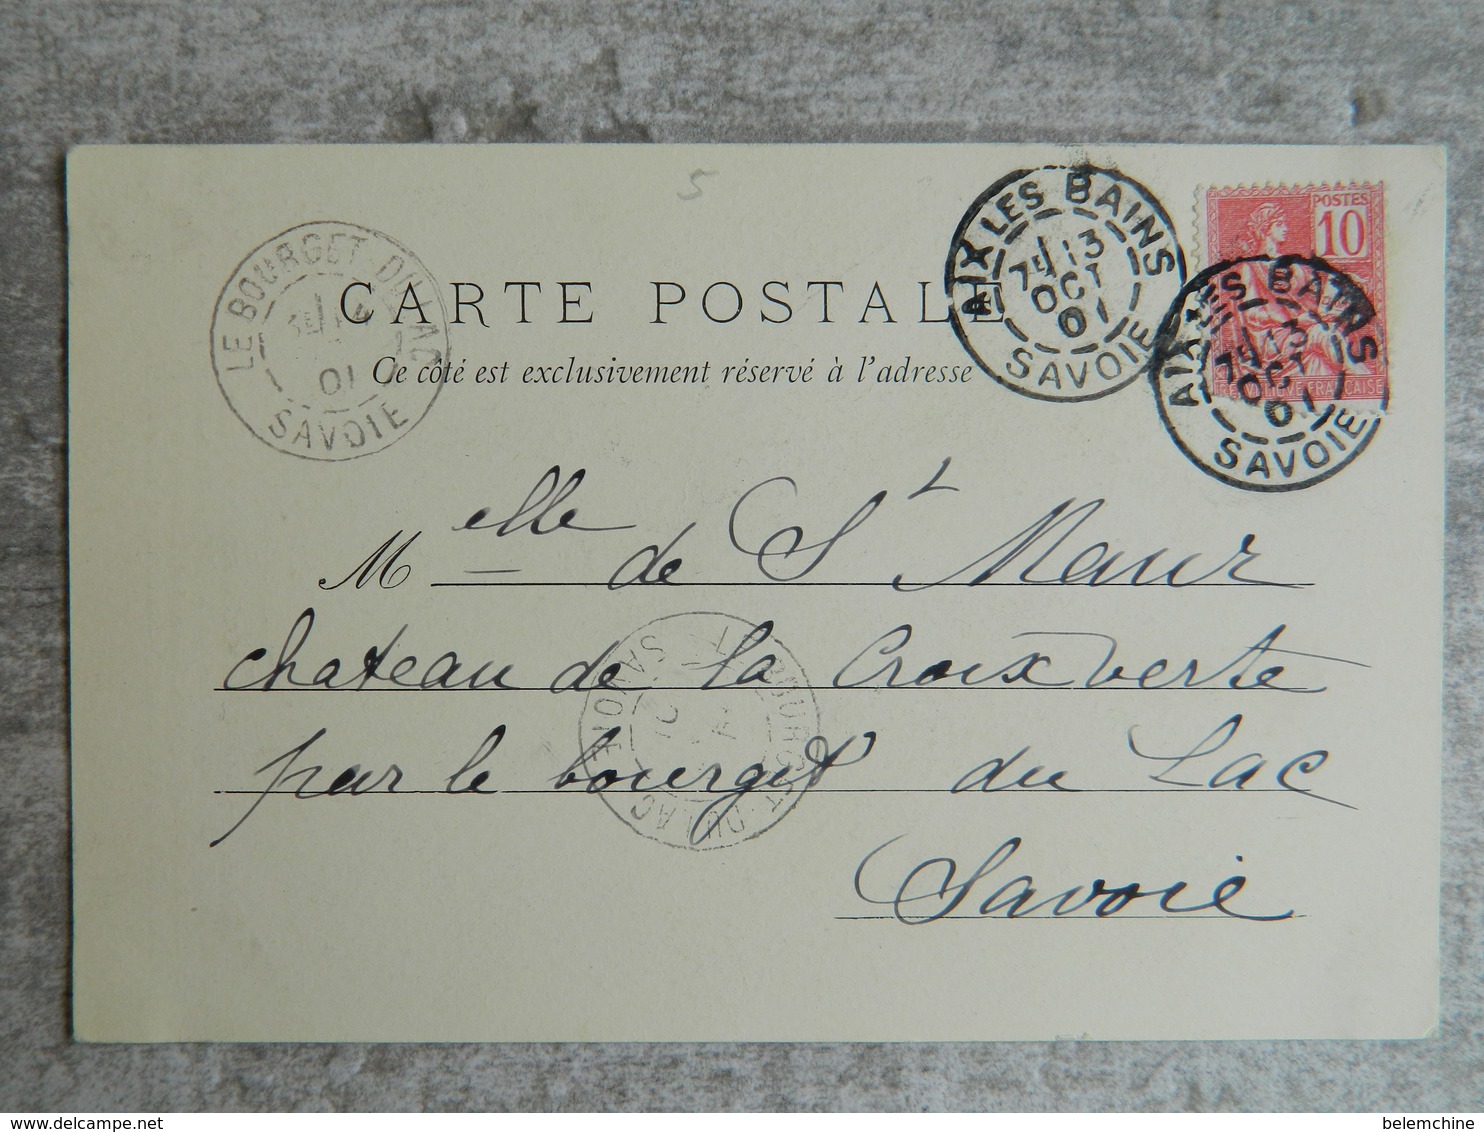 5
LE BOURGET-DU-LAC
01
SAVOIE
AIX LES BAINS
7E/13
OCT
01
SAVOIE
POSTES
10
AIX LES BAINS
7E/13
OCT
01
SAVOIE
REPUBLIQUE FRANCAISE
CARTE POSTALE
Ce côté est exclusivement réservé à l'adresse
Melle de St Maur
chateau de la Croix verte
par le bourget du Lac
Savoie
LE BOURGET-DU-LAC
SAVOIE
belemchine